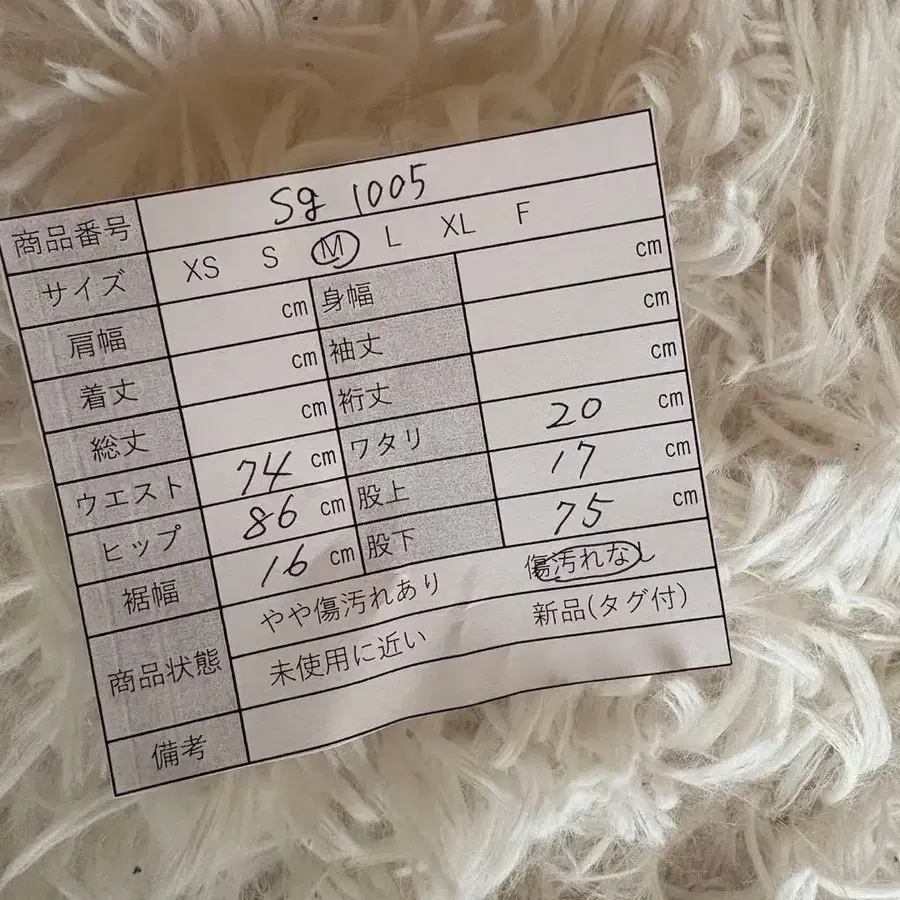 商品番号 Sg 1005
サイズ XS S M L XL F
肩幅 cm 身幅 cm
着丈 cm 袖丈 cm
総丈 cm 裄丈 cm
ウエスト 74 cm ワタリ 20 cm
ヒップ 86 cm 股上 17 cm
裾幅 16 cm 股下 75 cm
商品状態 やや傷汚れあり 傷汚れなし
未使用に近い 新品(タグ付)
備考